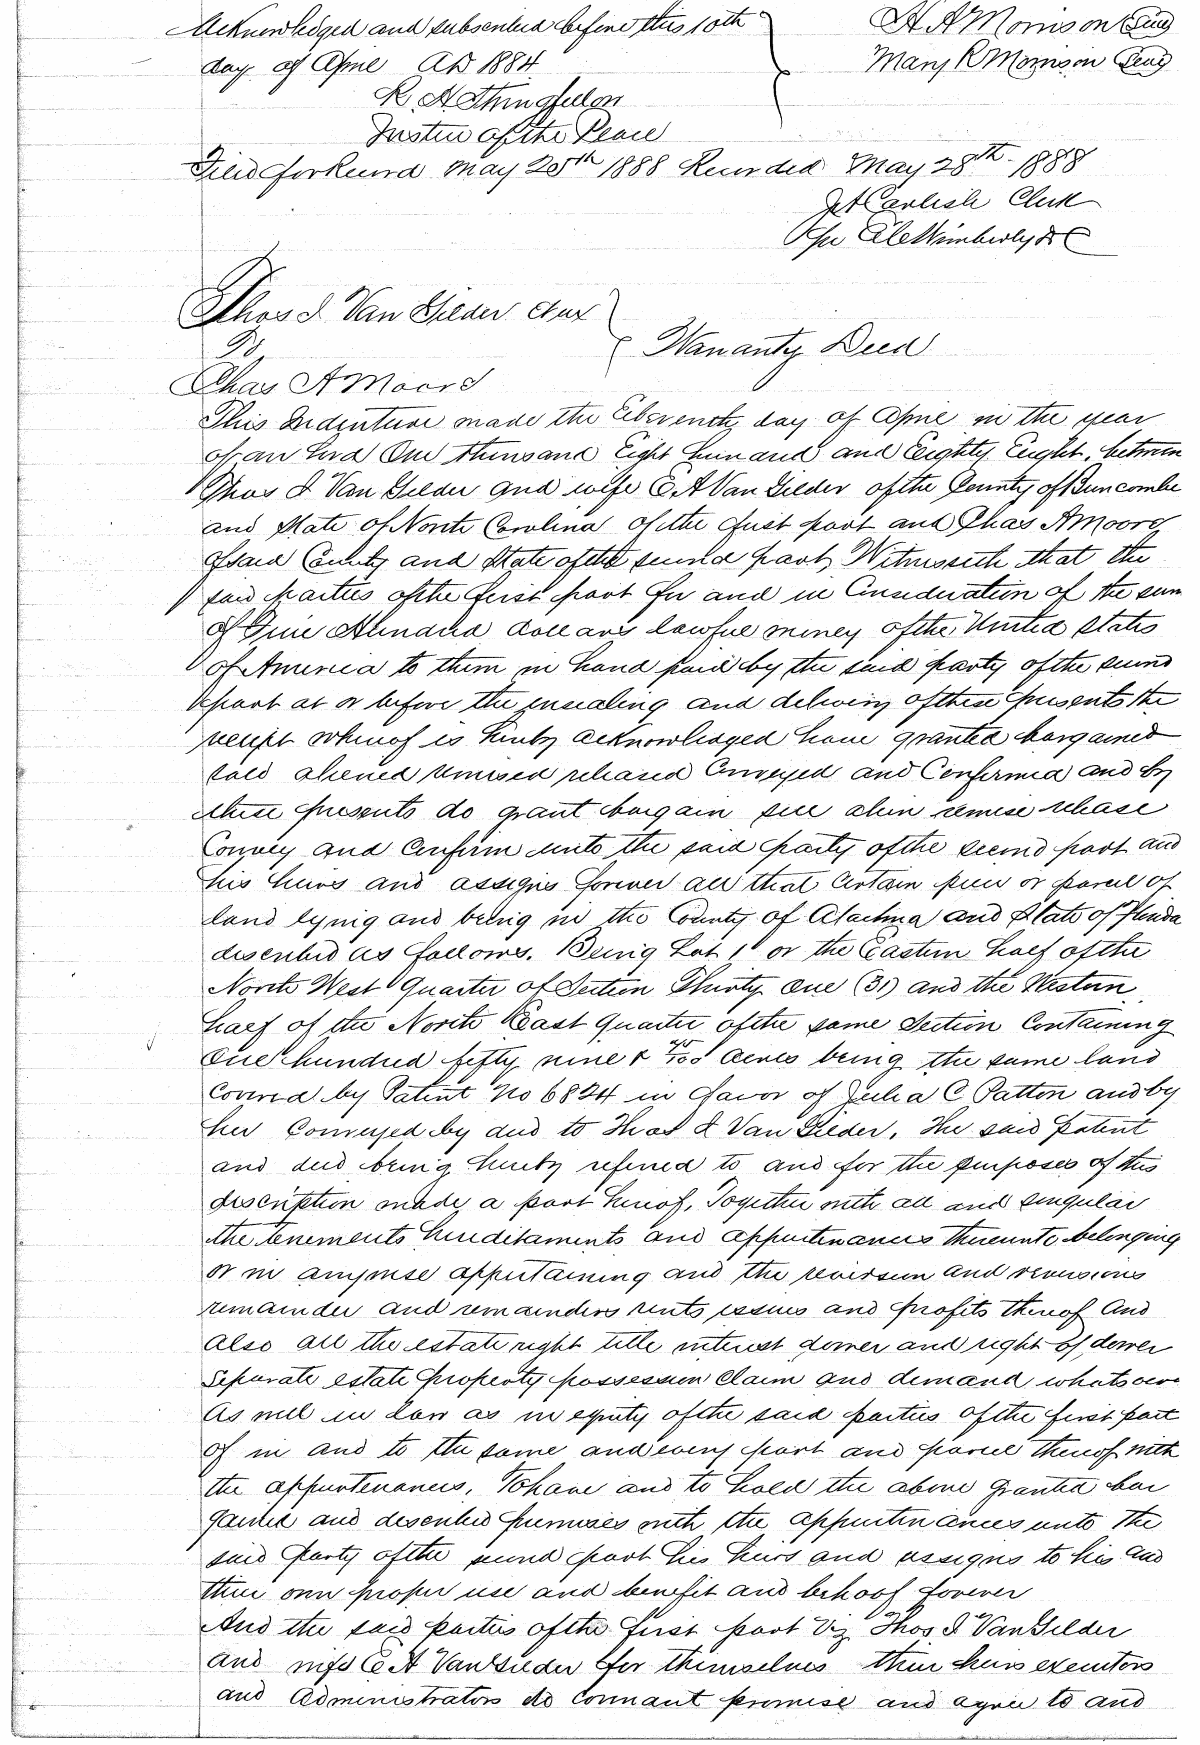 Acknowledged and subscribed before this 10th
day of April AD 1884
H A Morrison Seal
Mary R Morrison Seal
R. H.
Justice of the Peace
Filed for Record May 28th 1888 Recorded May 28th 1888
J A Carlisle Clerk
Per Wimberly D C
Thos I Van Gilder et ux
To
Warranty Deed
Chas A Moore
This Indenture made the Eleventh day of April in the year
of our Lord One thousand Eight hundred and Eighty Eight, between
Thos I Van Gilder and wife E. A Van Gilder of the County of Buncombe
and State of North Carolina of the first part and Chas A Moore
of said County and State of the second part, Witnesseth that the
said parties of the first part for and in Consideration of the sum
of Hundred dollars lawful money of the United States
of America to them in hand paid by the said party of the second
part at or before the ensealing and delivery of these presents the
receipt whereof is hereby acknowledged have granted bargained
sold aliened remised released Conveyed and Confirmed and by
these presents do grant bargain sell alien remise release
Convey and Confirm unto the said party of the second part and
his heirs and assigns forever all that Certain piece or parcel of
land lying and being in the County of Alachua and State of Florida
described as follows. Being Lot 1 or the Eastern half of the
North West Quarter of Section Thirty One (31) and the Western
half of the North East Quarter of the same Section Containing
One hundred fifty nine & /100 acres being the same land
Covered by Patent No 6824 in favor of Julia C Patton and by
her Conveyed by deed to Thos I Van Gilder. The said Patent
and deed being hereby referred to and for the purposes of this
description made a part hereof, Together with all and singular
the tenements hereditaments and appurtenances thereunto belonging
or in anywise appertaining and the reversion and reversions
remainder and remainders rents issues and profits thereof And
also all the estate right title interest dower and right of dower
separate estate property possession claim and demand whatsoever
As well in law as in equity of the said parties of the first part
of in and to the same and every part and parcel thereof with
the appurtenances, To have and to hold the above granted bar
gained and described premises with the appurtenances unto the
said party of the second part his heirs and assigns to his and
their own proper use and benefit and behoof forever
And the said parties of the first part Viz Thos I Van Gilder
and wife E. A Van Gilder for themselves their heirs executors
and Administrators do covenant promise and agree to and